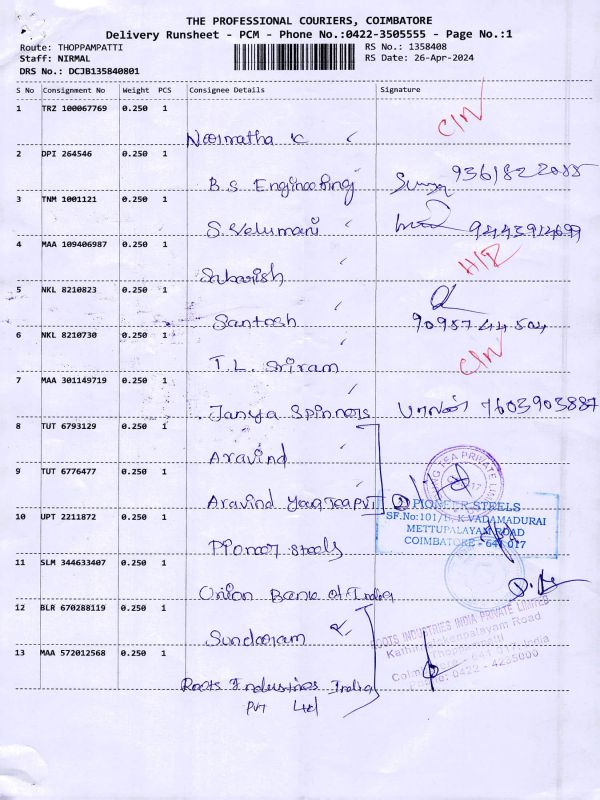 THE PROFESSIONAL COURIERS, COIMBATORE
Delivery Runsheet - PCM - Phone No.:0422-3505555 - Page No.:1
Route: THOPPAMPATTI
RS No.: 1358408
Staff: NIRMAL
RS Date: 26-Apr-2024
DRS No.: DCJB135840801
S No Consignment No Weight PCS Consignee Details Signature
1 TRZ 100067769 0.250 1
C/N
2 DPI 264546 0.250 1
B.S. Engineering 9361822088
3 TNM 1001121 0.250 1
S. Velumani 9443914699
4 MAA 109406987 0.250 1
Sabarish
5 NKL 8210823 0.250 1
Santosh 9095744504
6 NKL 8210730 0.250 1
T.L. Sriram C/N
7 MAA 301149719 0.250 1
Janya Spinners 7603903887
8 TUT 6793129 0.250 1
Aravind
9 TUT 6776477 0.250 1
Aravind PVT
TEA PRIVATE
10 UPT 2211872 0.250 1
Pioneer Steels
PIONEER STEELS
SF.No:101/B, K VADAMADURAI
METTUPALAYAM ROAD
COIMBATORE - 641 017
11 SLM 344633407 0.250 1
Union Bank of India
12 BLR 670288119 0.250 1
Sundaram
13 MAA 572012568 0.250 1
Roots Industries India
Pvt Ltd
ROOTS INDUSTRIES INDIA PRIVATE LIMITED
Thoppampatti
Phone: 0422 - 4235000